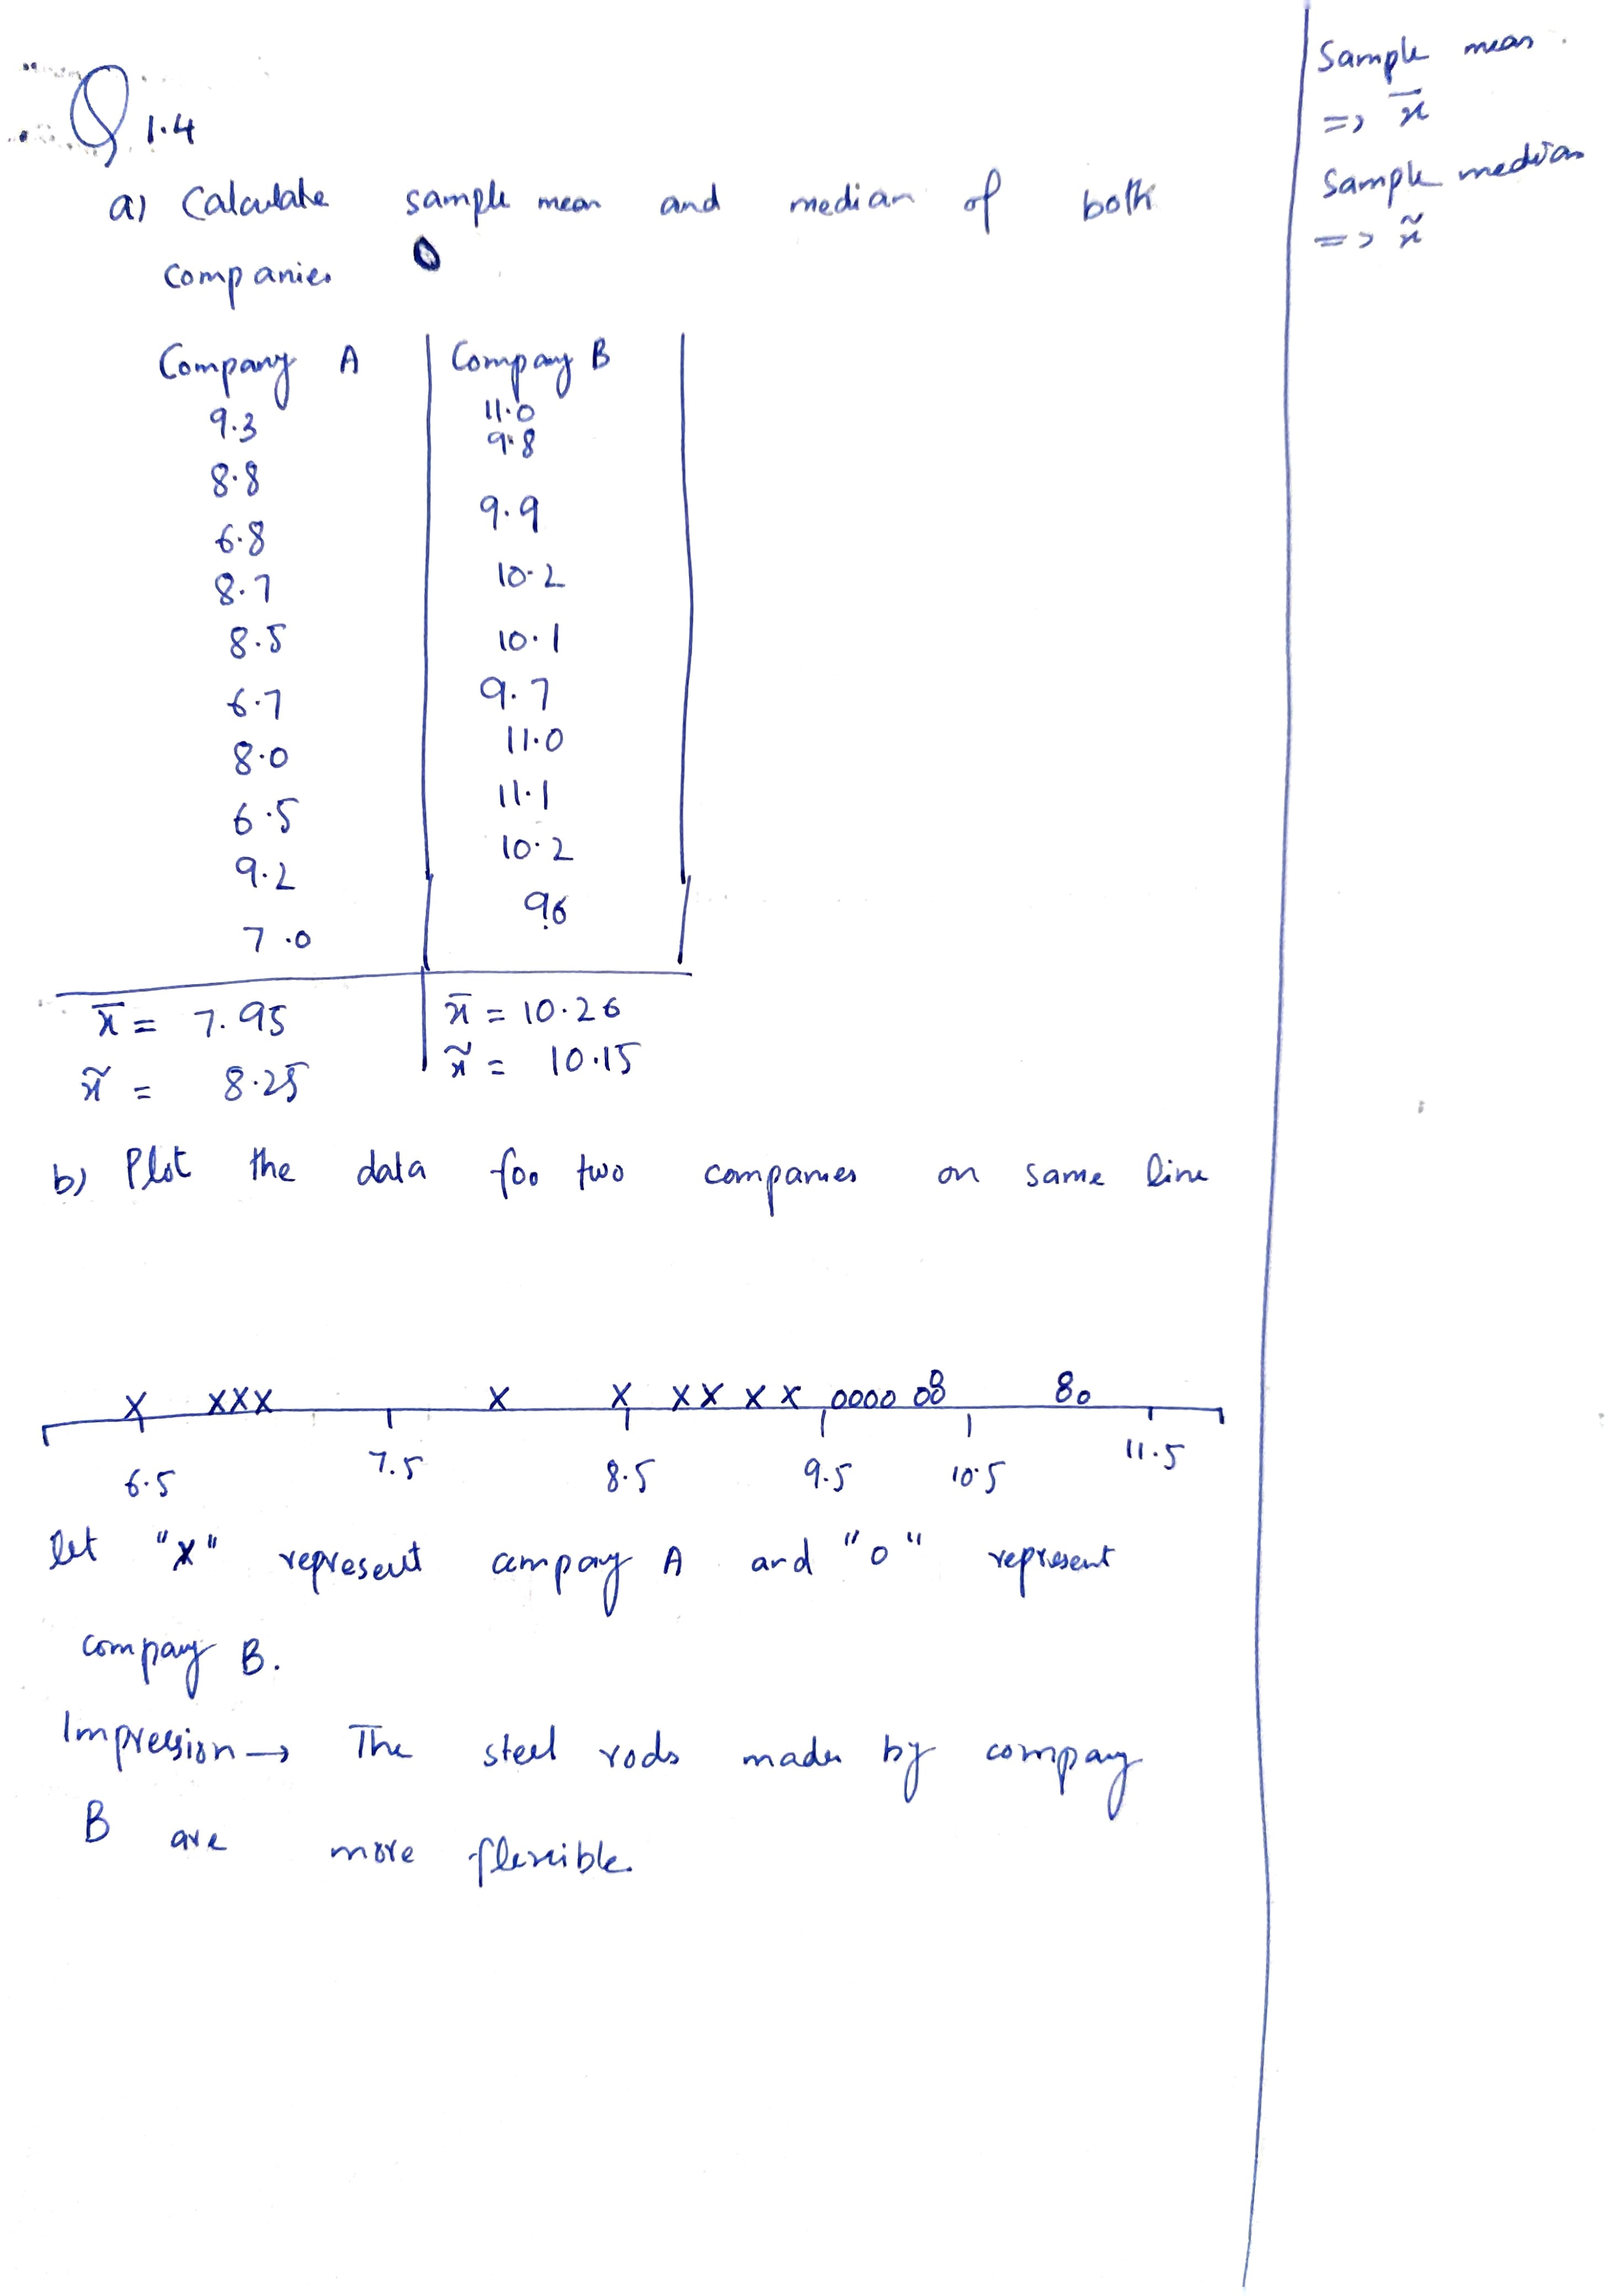 Q 1.4
a) Calculate sample mean and median of both
companies
Company A
9.3
8.8
6.8
8.7
8.5
6.7
8.0
6.5
9.2
7.0
x̄ = 7.95
x̃ = 8.25
Company B
11.0
9.8
9.9
10.2
10.1
9.7
11.0
11.1
10.2
9.6
x̄ = 10.26
x̃ = 10.15
b) Plot the data for two companies on same line
X XXX X X XX X X 0000 08 8o
6.5 7.5 8.5 9.5 10.5 11.5
let "X" represent company A and "o" represent
company B.
Impression → The steel rods made by company
B are more flexible.
Sample mean
=> x̄
Sample median
=> x̃